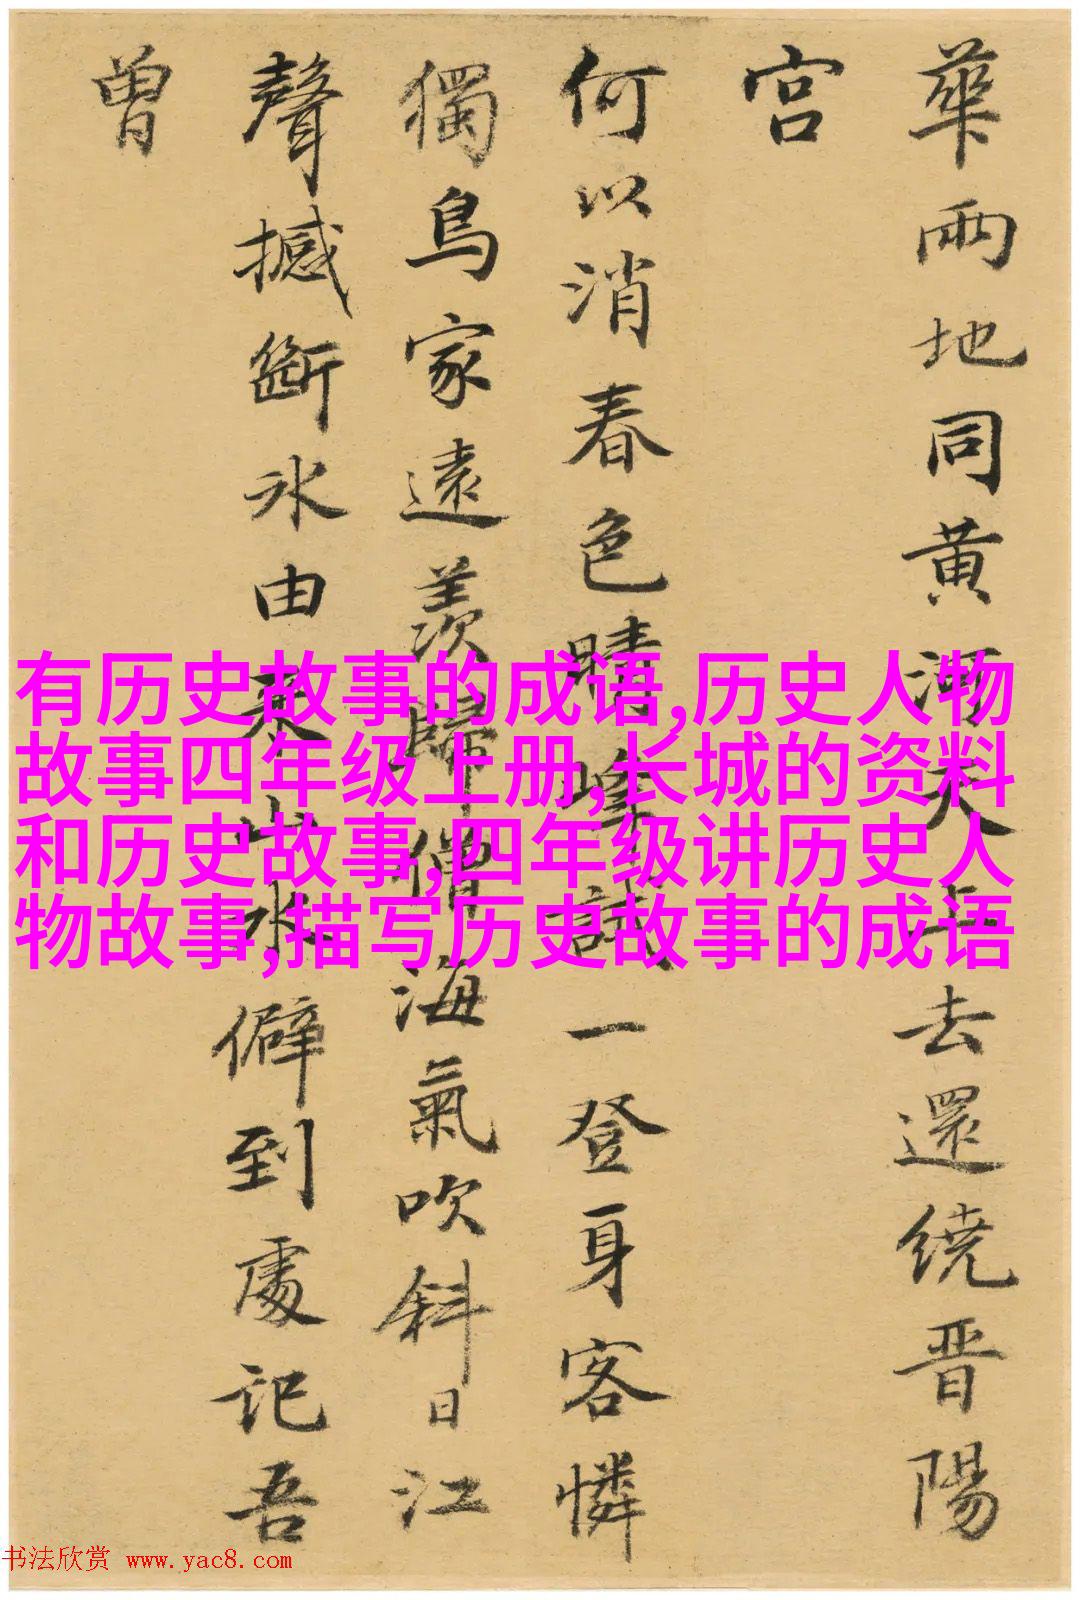 華兩地同黃河天上去還繞晉陽
宮
何以消春色晴峰試一登身客憐
獨鳥家遠羨歸僧海氣吹斜日江
聲撼斷冰由來山水僻到處記吾
曾
有历史故事的成语,历史人物
故事四年级上册,长城的资料
和历史故事,四年级讲历史人
物故事,描写历史故事的成语
书法欣赏 www.yac8.com